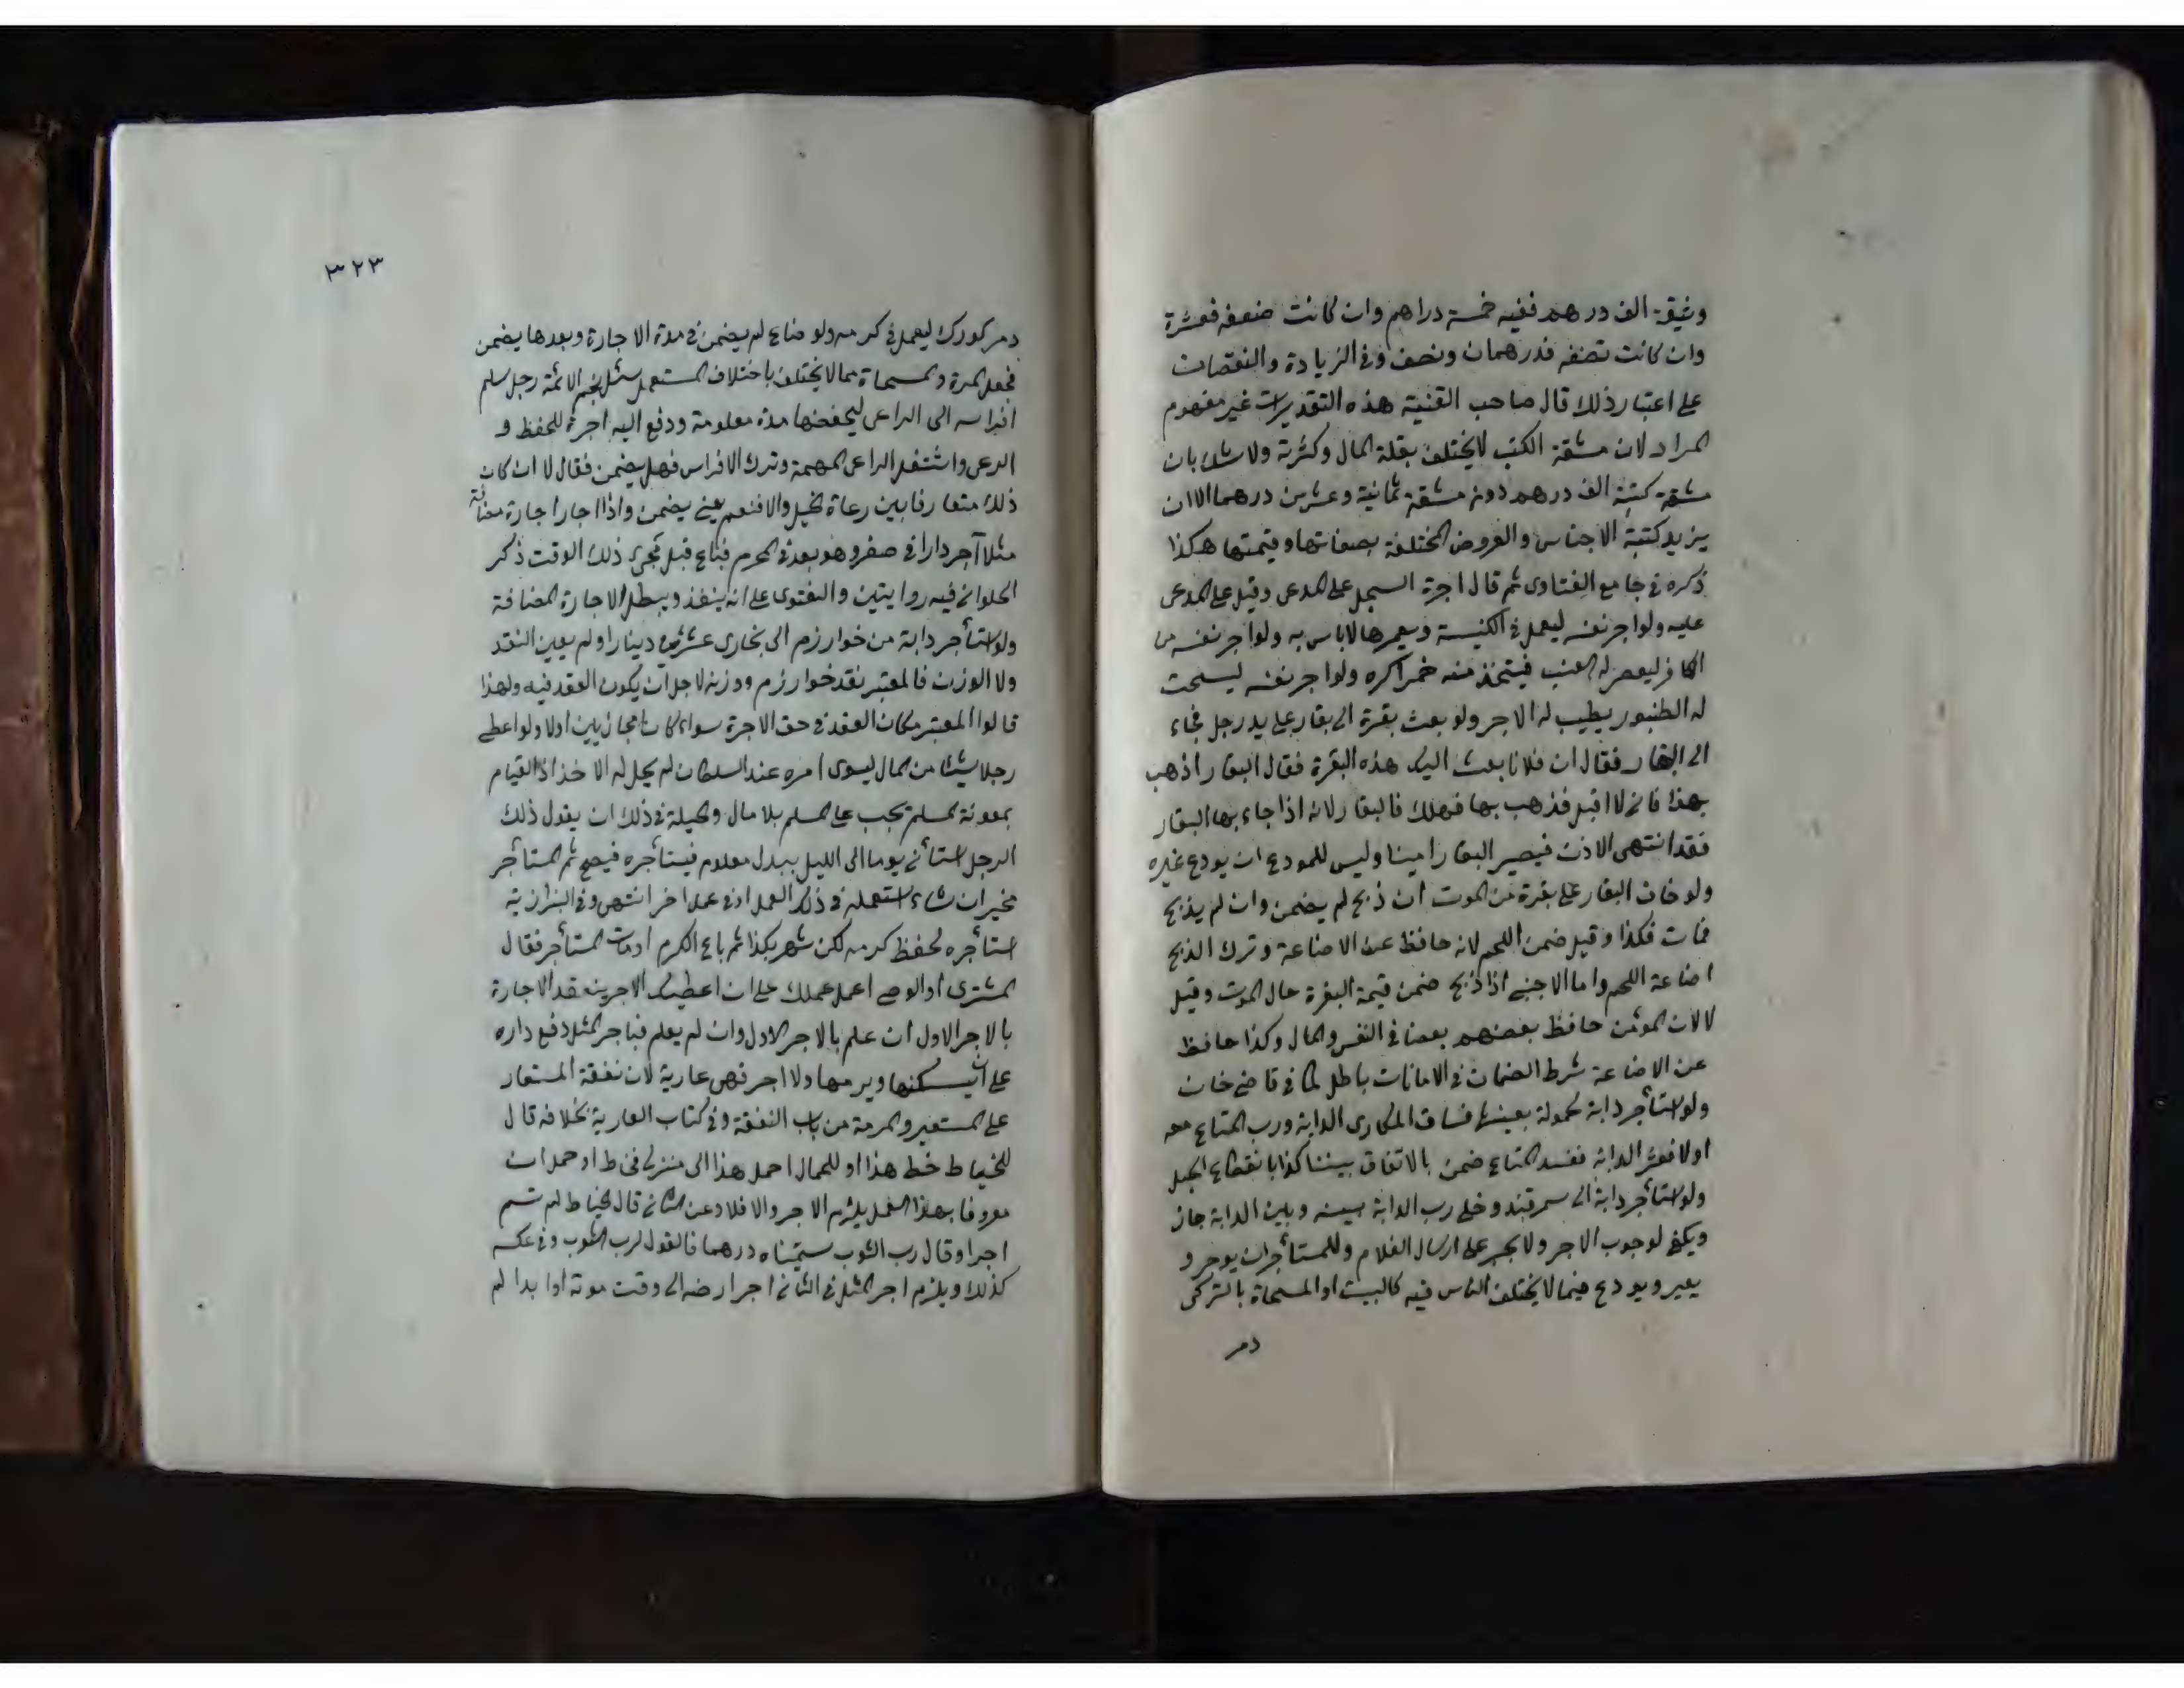 وثيقة الف درهم ففيه خمسة دراهم وان كانت ضعفه فعشرة
وان كانت نصفه فدرهمان ونصف وفى الزيادة والنقصان
على اعتبار ذلك قال صاحب القنية هذه التقديرات غير مفهوم
المراد لان مشقة الكتب لا يختلف بقلة المال وكثرته ولا شك بان
مشقة كتبة الف درهم دون مشقة ثمانية وعشرين درهما الا ان
يزيد كتبة الاجناس والعروض المختلفة بصفاتها وقيمتها هكذا
ذكره فى جامع الفتاوى ثم قال اجرة السجل على المدعى وقيل على المدعى
عليه ولو اجر نفسه ليعمل فى الكنيسة ويعمرها لا باس به ولو اجر نفسه من
الكافر ليعصر له العنب فيتخذ منه خمرا كره ولو اجر نفسه لينحت
له الطنبور يطيب له الاجر ولو بعث بقرة الى بقار على يد رجل فجاء
الى البقار فقال ان فلانا بعث اليك هذه البقرة فقال البقار اذهب
بهذا فانى لا اقبل فذهب بها فهلك فالبقار لانه اذا جاء بها البقار
فقد انتهى الاذن فيصير البقار امينا وليس للمودع ان يودع غيره
ولو خاف البقار على بقرة من الموت ان ذبح لم يضمن وان لم يذبح
فمات فكذا وقيل ضمن اللحم لانه حافظ عن الاضاعة وترك الذبح
اضاعة اللحم واما الاجنبى اذا ذبح ضمن قيمة البقرة حال الموت وقيل
لا لان الموئمن حافظ بعضهم بعضا فى النفس والمال وكذا حافظ
عن الاضاعة شرط الضمان فى الامانات باطل كما فى قاضيخان
ولو استأجر دابة لحمولة بعينها فساق المكارى الدابة ورب المتاع معه
اولا فعثر الدابة ففسد المتاع ضمن بالاتفاق بيننا كذا بانقطاع الحبل
ولو استأجر دابة الى سمرقند وخلى رب الدابة بينه وبين الدابة جاز
ويكفى لوجوب الاجر ولا يجبر على ارسال الغلام وللمستأجر ان يوجر و
يعير ويودع فيما لا يختلف الناس فيه كالبيت او المسحاة بالتركى
دمر
٣٢٣
دمر كورك ليعمل فى كرمه ولو ضاع لم يضمن فى مدة الاجارة وبعدها يضمن
فجعل المرة والمسحاة مما لا يختلف باختلاف المستعمل سئل نجم الائمة رجل سلم
افراسه الى الراعى ليحفظها مدة معلومة ودفع اليه اجرة للحفظ و
الرعى واشتغل الراعى لمهمة وترك الافراس فهل يضمن فقال لا ان كان
ذلك متعارفا بين رعاة الخيل والا فنعم يعنى يضمن واذا اجار اجارة مضافة
مثلا آجر دارا فى صفر وهو بعد فى المحرم فباع قبل مجئ ذلك الوقت ذكر
الحلوانى فيه روايتين والفتوى على انه ينفذ ويبطل الاجارة المضافة
ولو استأجر دابة من خوارزم الى بخارى عشرين دينارا ولم يعين النقد
ولا الوزن فالمعتبر نقد خوارزم ووزنه لاجل ان يكون العقد فيه ولهذا
قالوا المعتبر مكان العقد فى حق الاجرة سواء كان مجازيين اولا ولو اعطى
رجلا شيئا من المال ليسوى امره عند السلطان لم يحل له الاخذ اذ القيام
بمعونة المسلم يجب على المسلم بلا مال والحيلة فى ذلك ان يقول ذلك
الرجل استأنى يوما الى الليل ببدل معلوم فيستأجره فيصح ثم المستأجر
مخير ان شاء استعمله فى ذلك العمل او فى عمل اخر انتهى وفى البزازية
استأجره لحفظ كرمه لكن شهر بكذا ثم باع الكرم او مات المستأجر فقال
المشترى او الوصى اعمل عملك على ان اعطيك الاجر ينعقد الاجارة
بالاجر الاول ان علم بالاجر الاول وان لم يعلم فباجر المثل دفع داره
على ان يسكنها ويرمها ولا اجر فهى عارية لان نفقة المستعار
على المستعير والمرمة من باب النفقة وفى كتاب العارية بخلافه قال
للخياط خط هذا او للحمال احمل هذا الى منزلى فخاط او حمل ان
معروفا بهذا العمل يلزم الاجر والا فلا وعن الثانى قال الخياط لم تسم
اجرا وقال رب الثوب سميناه درهما فالقول لرب الثوب وفى عكسه
كذلك ويلزم اجر المثل فى الثانى اجر ارضه الى وقت موته او ابدا لم